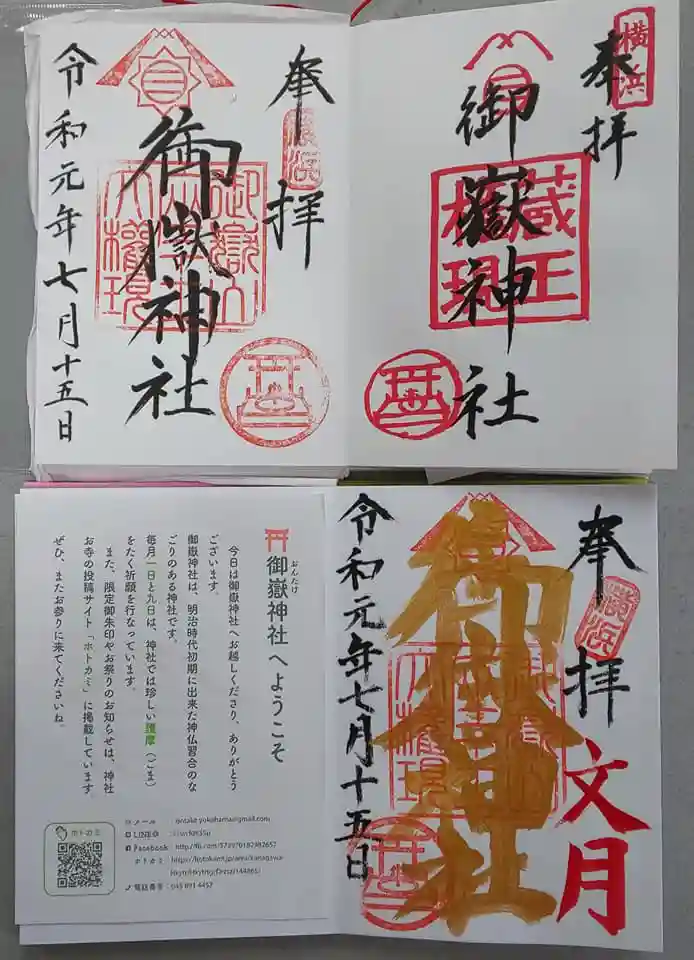 奉拝
横浜
御嶽神社
御嶽山
大権現
令和元年七月十五日
奉拝
横浜
御嶽神社
蔵王
権現
御嶽神社へようこそ
おんたけ
今日は御嶽神社へお越しくださり、ありがとう
ございます。
御嶽神社は、明治時代初期に出来た神仏習合のな
ごりのある神社です。
毎月一日と九日は、神社では珍しい護摩(ごま)
をたく祈願を行なっています。
また、限定御朱印やお祭りのお知らせは、神社
お寺の投稿サイト「ホトカミ」に掲載しています。
ぜひ、またお参りに来てくださいね。
ホトカミ
メール
LINE@
Facebook
ホトカミ
電話番号 045 891 4457
奉拝
横浜
文月
御嶽神社
令和元年七月十五日